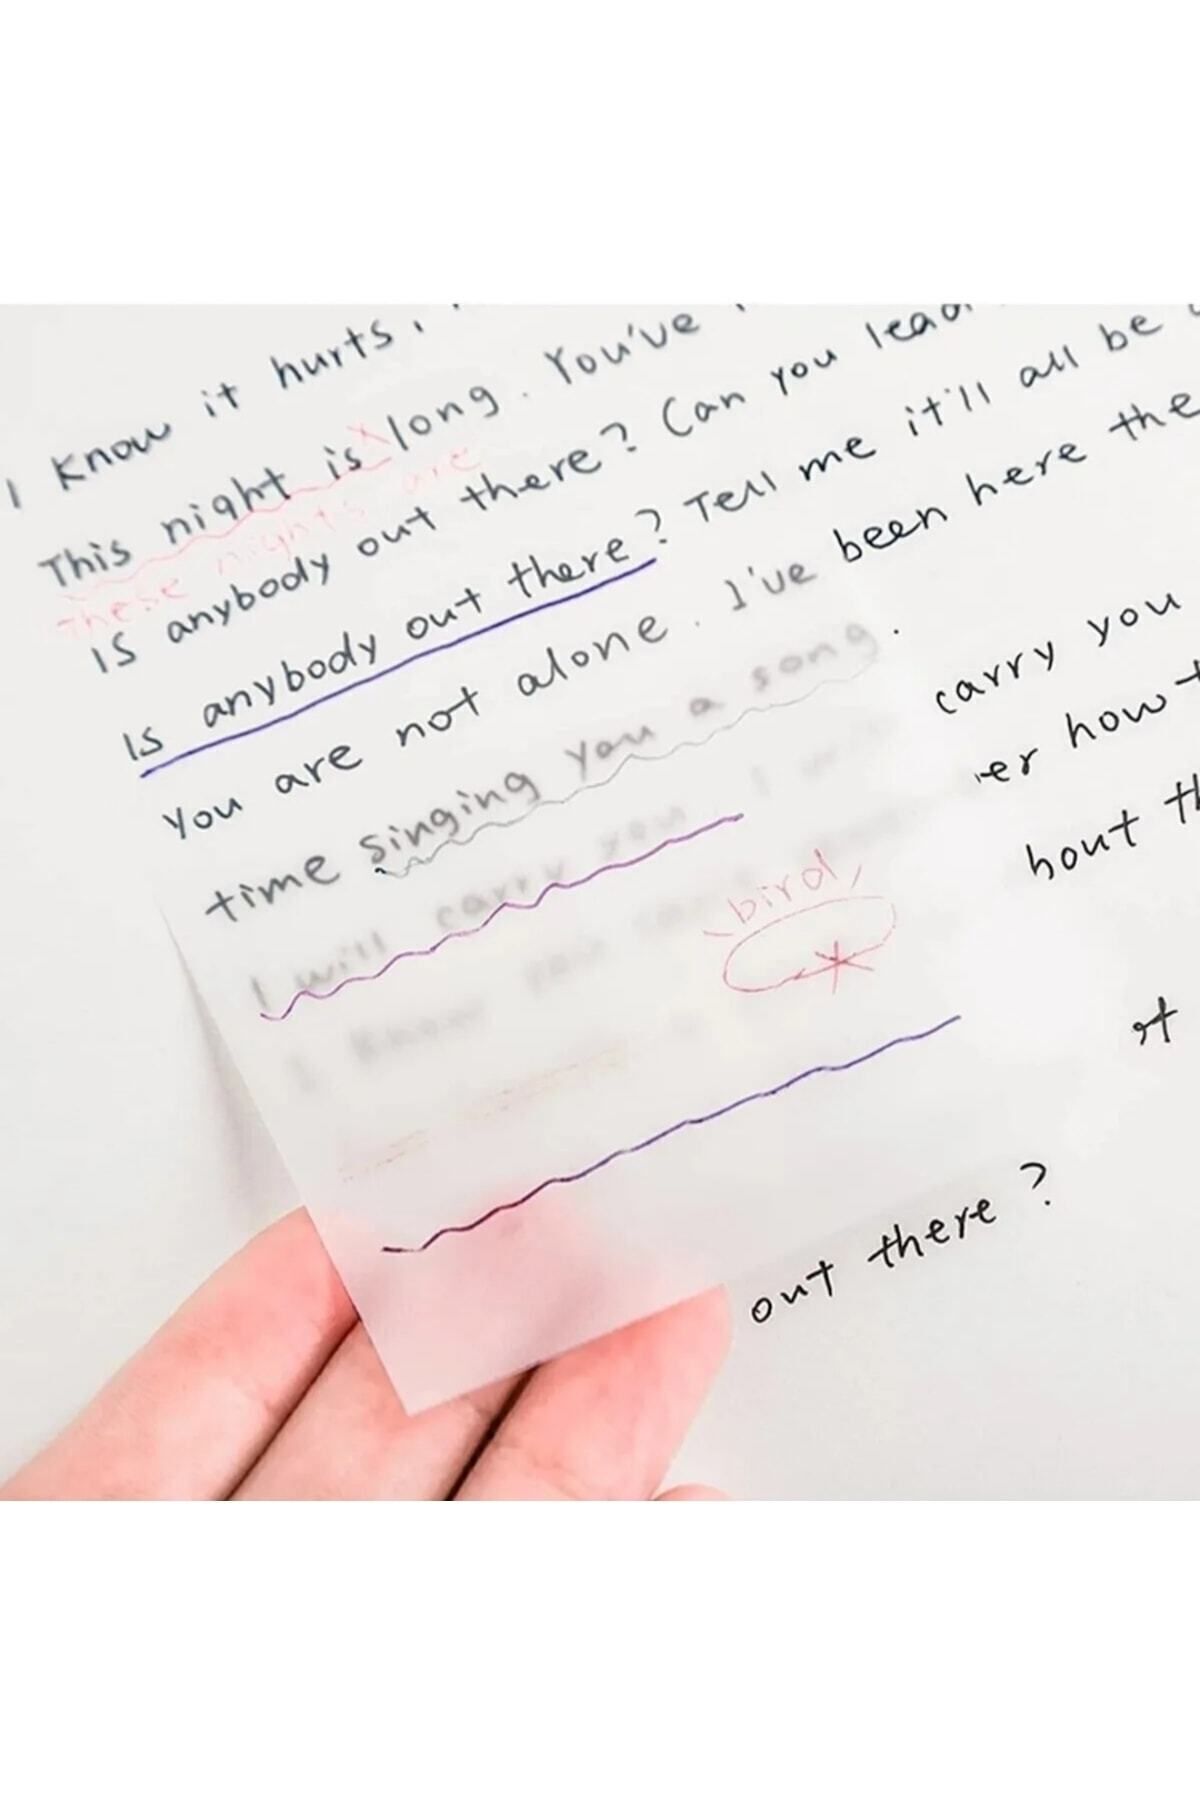 I know it hurts,
This night is long. You've
These nights are
Is anybody out there? Can you lead
Is anybody out there? Tell me it'll all be
You are not alone. I've been here the
time singing you a song.
I will carry you. I carry you
know you er how
bird
hout
out there?